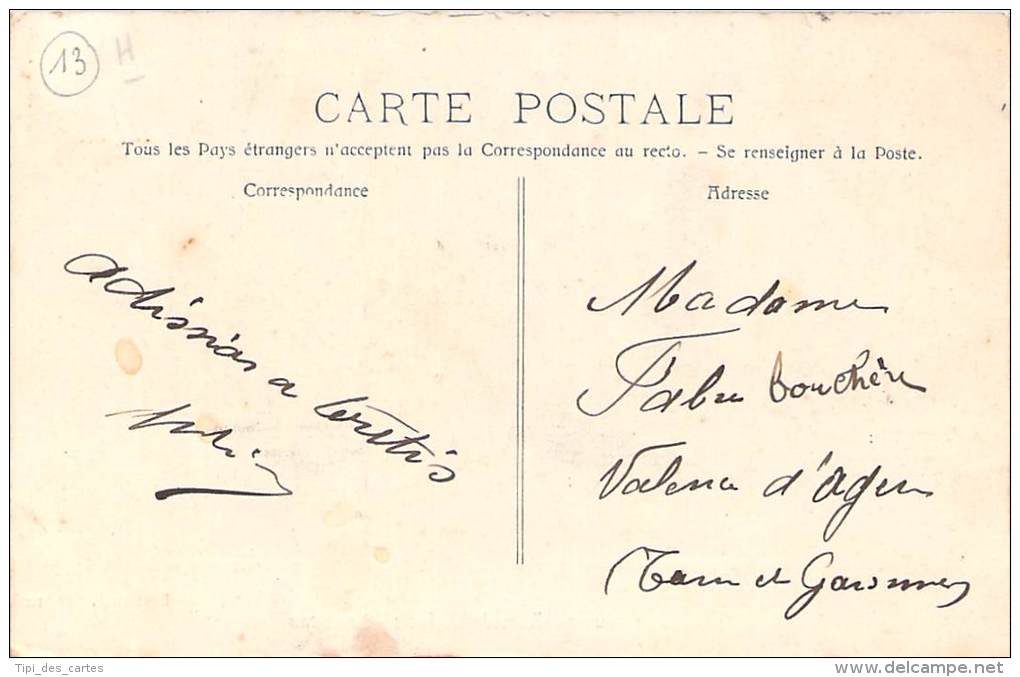 13 H
CARTE POSTALE
Tous les Pays étrangers n'acceptent pas la Correspondance au recto. - Se renseigner à la Poste.
Correspondance
Adresse
adissias a
Madame
Fabre bouchère
Valence d'Agen
Tarn et Garonne
Tipi_des_cartes
www.delcampe.net